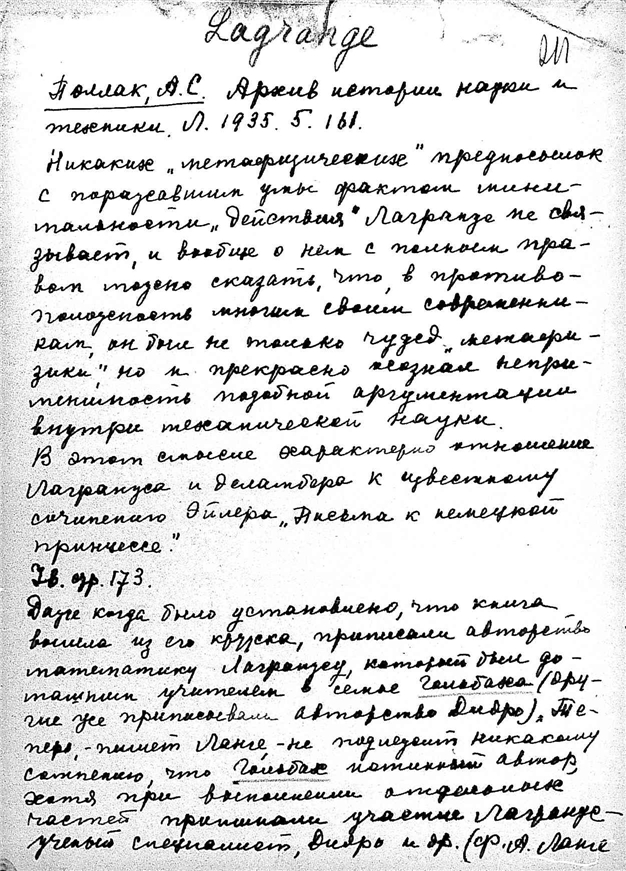 Lagrange
211
Поллак, А.С. Архив истории науки и
техники. Л. 1935. 5. 161.
Никаких „метафизических" предпосылок
с поразившим умы фактом мини-
мальности „действия" Лагранж не свя-
зывает, и вообще о нем с полным пра-
вом можно сказать, что, в противо-
положность многим своим современни-
кам, он был не только чужд „метафи-
зики", но и прекрасно осознал непри-
менимость подобной аргументации
внутри механической науки.
В этом смысле характерно отношение
Лагранжа и Деламбера к известному
сочинению Эйлера „Письма к немецкой
принцессе".
Ib. стр. 173.
Даже когда было установлено, что книга
вышла из его кружка, приписали авторство
математику Лагранжу, который был до-
машним учителем в семье Гольбаха (дру-
гие уже приписывали авторство Дидро). Те-
перь, - пишет Ланге, - не подлежит никакому
сомнению, что Гольбах истинный автор,
хотя при выполнении отдельных
частей принимали участие Лагранж -
ученый специалист, Дидро и др. (Ф. А. Ланге